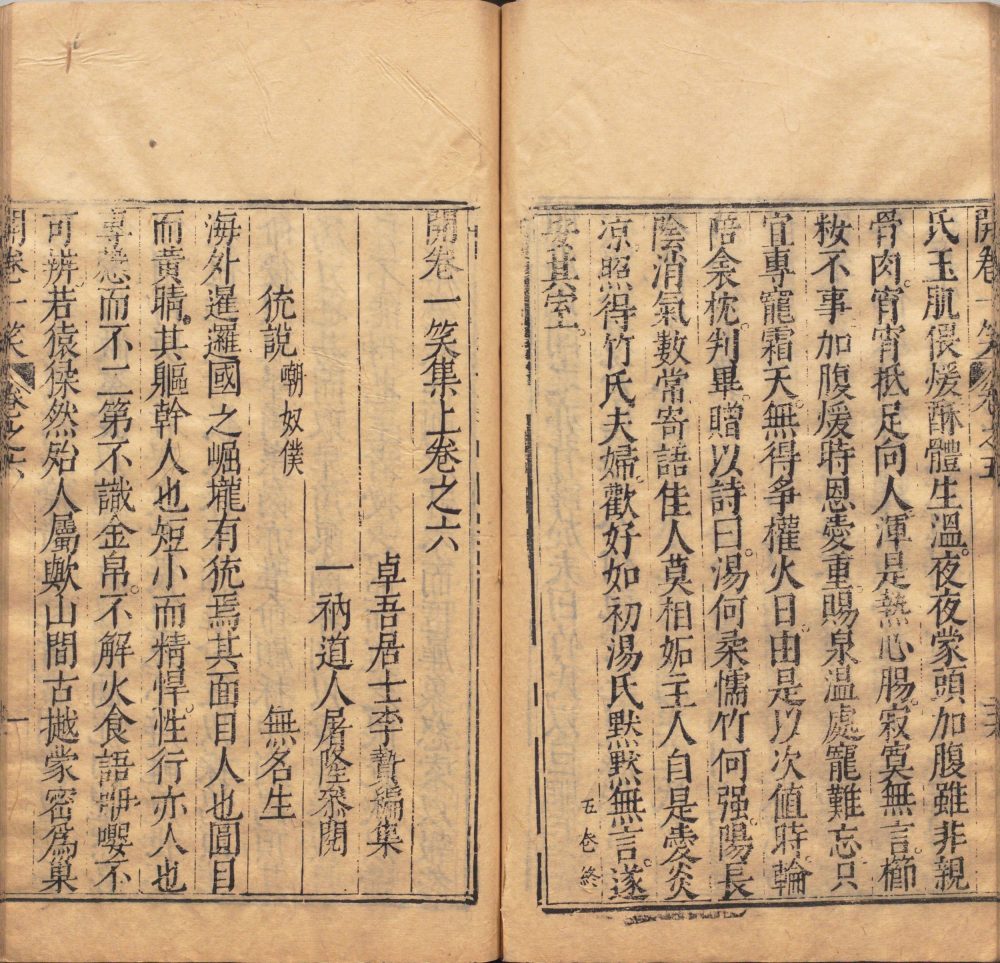 開卷一笑 卷之五
氏玉肌偎煖酥體生溫夜夜蒙頭加腹雖非親
骨肉宵宵抵足向人渾是熱心腸寂寞無言櫛
㪇不事加腹煖時恩愛重賜泉溫處寵難忘只
宜專寵霜天無得争權火日由是以次值時輪
陪衾枕判畢贈以詩曰湯何柔懦竹何强陽長
陰消氣數常寄語佳人莫相妬主人自是愛炎
凉照得竹氏夫婦歡好如初湯氏默默無言遂
其室
五卷終
開卷一笑集上卷之六
卓吾居士李贄編集
一衲道人屠隆參閱
狁說 嘲奴僕 無名生
海外暹邏國之崛壠有狁焉其面目人也圓目
而黄睛其軀幹人也短小而精悍性行亦人也
專慤而不二第不識金帛不解火食語咿嚶不
可辨若猿猱然殆人屬歟山間古樾蒙密爲巢
開卷一笑 卷之六 一